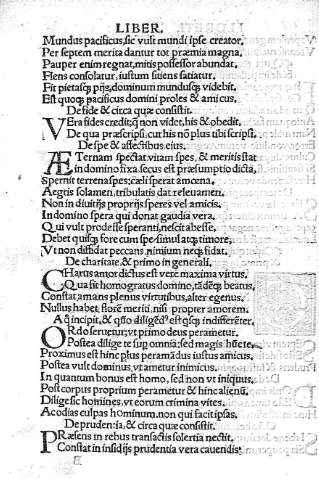 LIBER.
Mundus pacificus, sic vult mundi ipse creator,
Per septem merita dantur tot præmia magna,
Pauper enim regnat, mitis possessor abundat,
Flens consolatur, iustum sitiens satiatur.
Fit pietasq; pijs, dominum mundusq; videbit,
Est quoq; pacificus domini proles & amicus.
De fide & circa quæ consistit.
VEra fides credit q̃ non videt, his & obedit,
De qua præscripsi, cur his nõ plus tibi scripsi.
De spe & affectibus eius.
ÆTernam spectat vitam spes, & meritis stat
in domino fixa secus est præsumptio dicta,
Spernit terrena spes, cæli sperat amœna,
Aegris solamen, tribulatis dat releuamen,
Non in diuitijs proprijs speres vel amicis.
In domino spera qui donat gaudia vera.
Qui vult prodesse speranti, nescit abesse,
Debet quisq; fore cum spe simul atq; timore,
Vt non diffidat peccans, nimium neq; fidat.
De charitate, & primo in generali,
CHarus amor dictus est vere maxima virtus,
Qua sit homo gratus domino, tãdẽq; beatus,
Constat amans plenus virtutibus, alter egenus.
Nullus habet florẽ meriti, nisi propter amorem.
A q̃ incipit, & quõ diligẽdũ est q̃ isq; indifferẽter.
ORdo seruetur, vt primo deus perametur.
Postea dilige te sup omnia; sed magis hũc te.
Proximus est hinc plus peramãdus iustus amicus.
Postea vult dominus, vt ametur inimicus.
In quantum bonus est homo, sed non vt iniquus,
Post corpus proprium perametur & hinc alienũ,
Dilige sic homines, vt eorum crimina vites.
Ac odias culpas hominum, non qui facit ipsas,
De prudentia, & circa quæ consistit.
PRæsens in rebus transactis solertia nectit,
Constat in insidijs prudentia vera cauendis
B